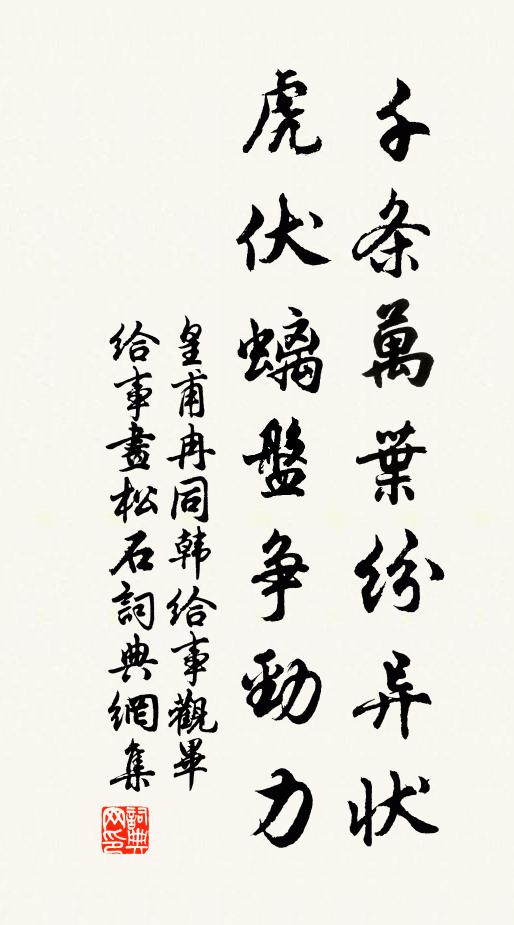 千条萬葉紛异状
虎伏螭盤争勁力
皇甫冉同韩给事觀畢
给事畫松石詞典網集
詞典网印